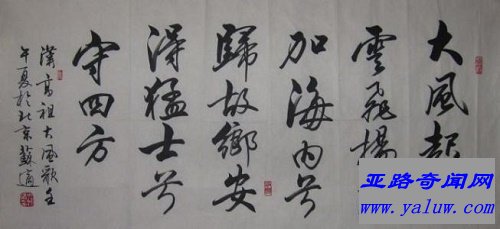 大風起
雲飛揚
加海内兮
歸故鄉安
得猛士兮
守四方
漢高祖大風歌壬
午夏於北京蘇適
亚路奇闻网
www.yaluw.com